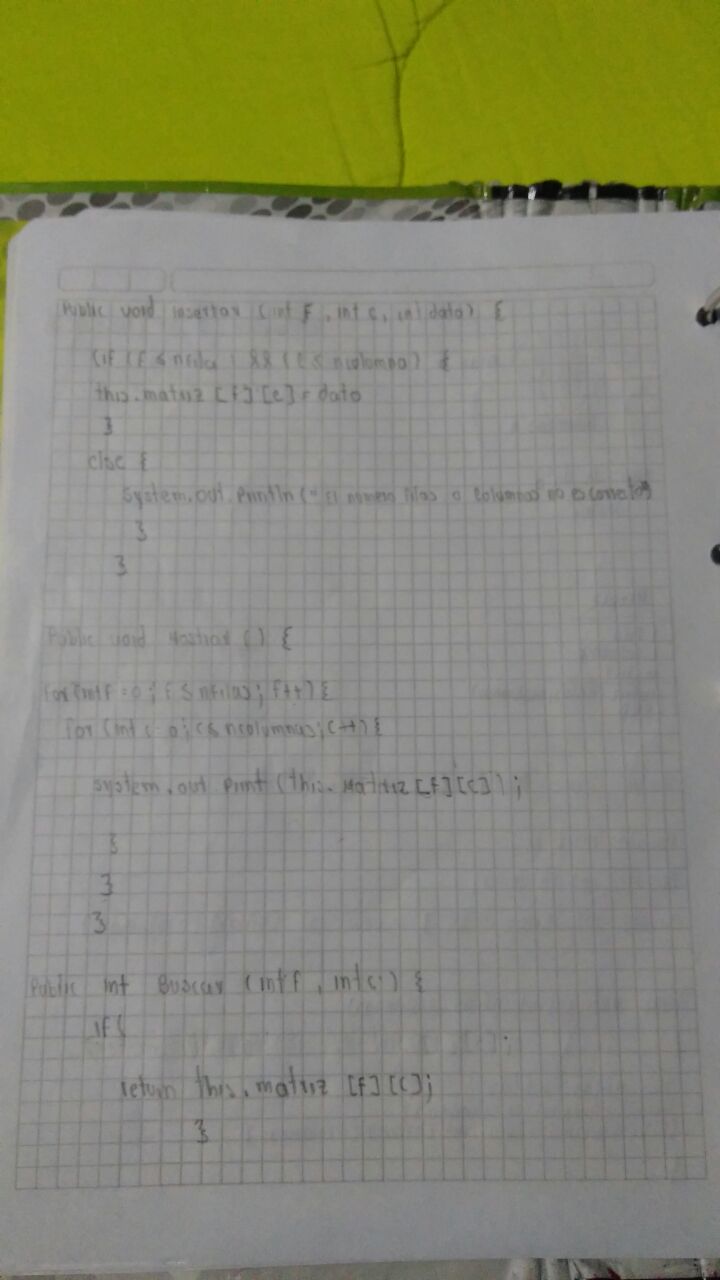 Public void insertar (int f, int c, int dato) {
(if (f ≤ nfila ) && (c ≤ ncolomna) {
this.matriz [f][c] = dato
}
else {
System.out.Println (" El numero filas o Columnas no es correctos
}
}
Public void Mostrar () {
for (int f = 0; f ≤ nfilas; f++) {
for (int c = 0; c ≤ ncolumnas; c++) {
system.out Print (this.Matriz [f][c]);
}
}
}
Public int Buscar (int f, int c) {
if (
return this.matriz [f][c];
}